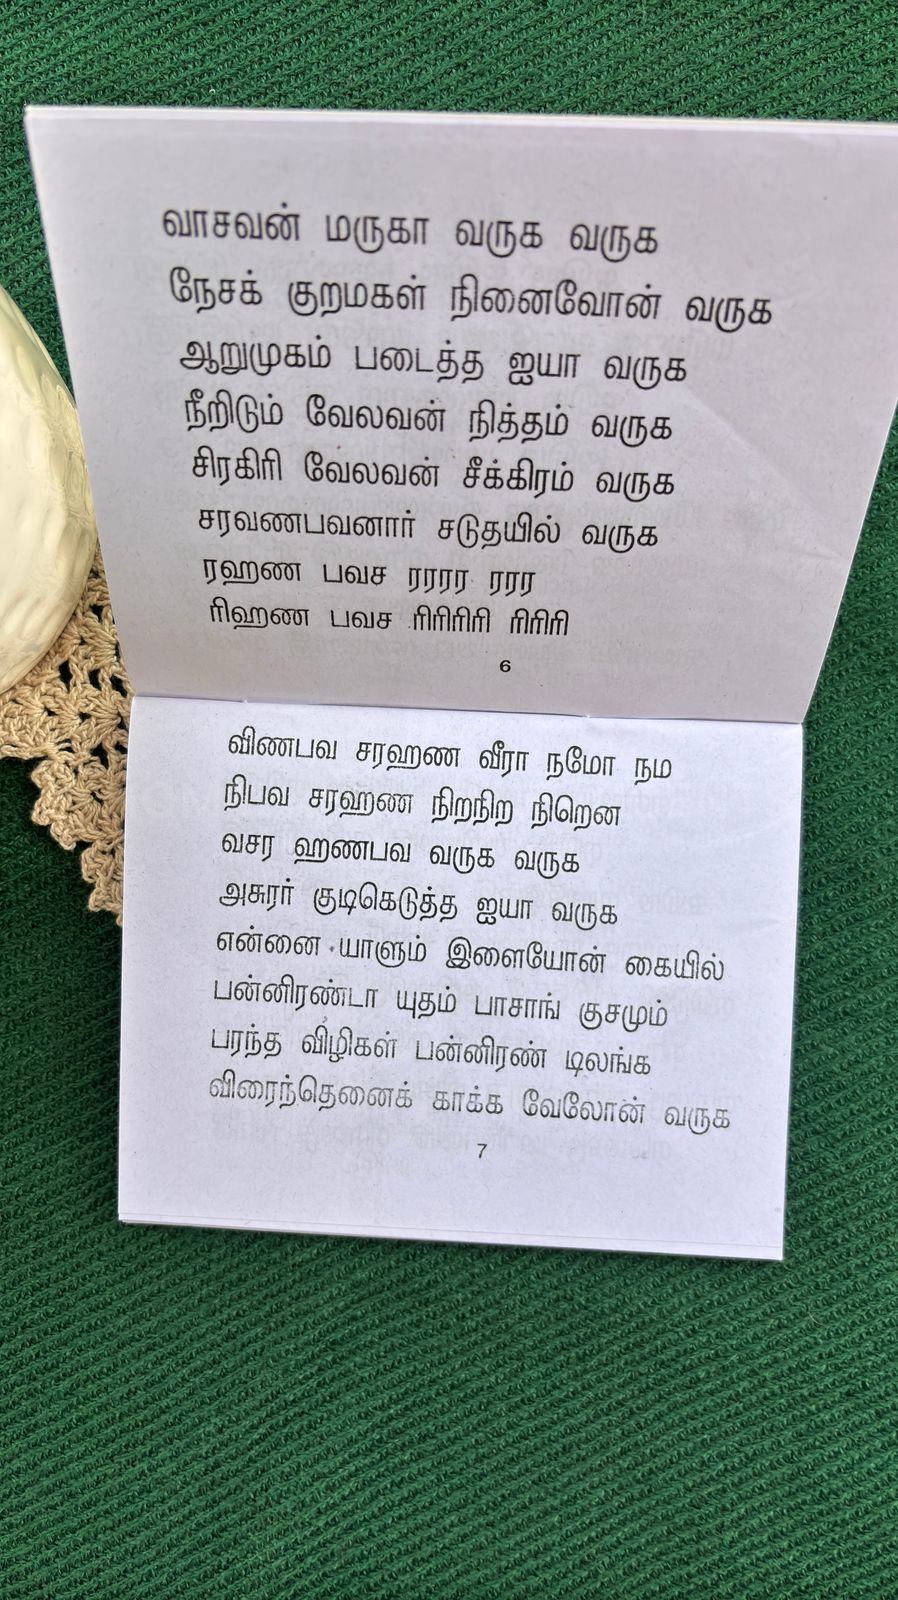 வாசவன் மருகா வருக வருக
நேசக் குறமகள் நினைவோன் வருக
ஆறுமுகம் படைத்த ஐயா வருக
நீறிடும் வேலவன் நித்தம் வருக
சிரகிரி வேலவன் சீக்கிரம் வருக
சரவணபவனார் சடுதயில் வருக
ரஹண பவச ரரரர ரரர
ரிஹண பவச ரிரிரிரி ரிரிரி
6
விணபவ சரஹண வீரா நமோ நம
நிபவ சரஹண நிறநிற நிறென
வசர ஹணபவ வருக வருக
அசுரர் குடிகெடுத்த ஐயா வருக
என்னை யாளும் இளையோன் கையில்
பன்னிரண்டா யுதம் பாசாங் குசமும்
பரந்த விழிகள் பன்னிரண் டிலங்க
விரைந்தெனைக் காக்க வேலோன் வருக
7